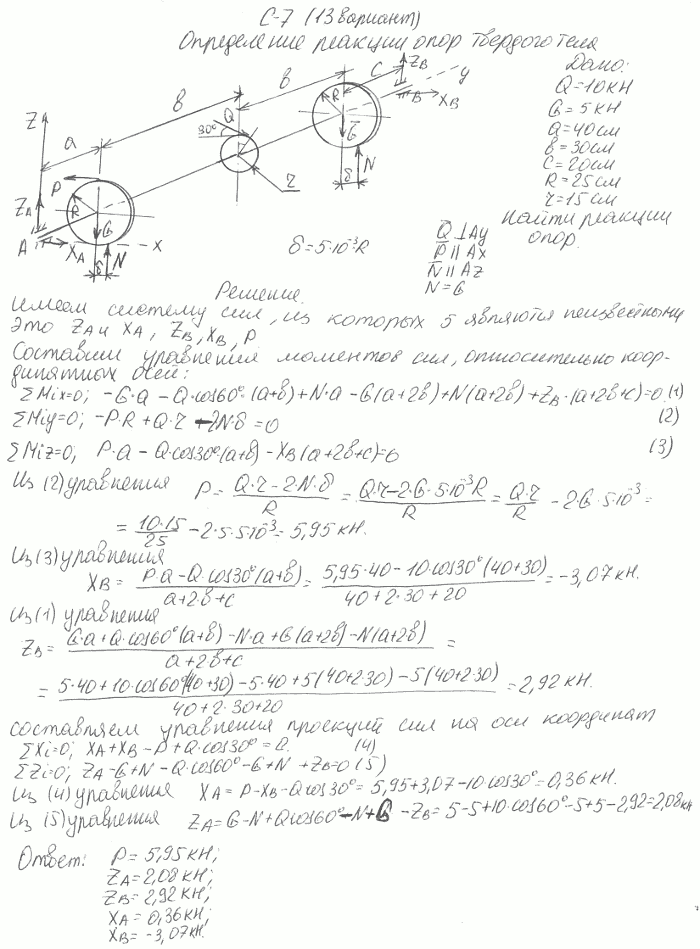 С-7 (13 вариант)
Определение реакции опор твердого тела
Дано:
Q=10кН
G=5кН
a=40см
в=30см
С=20см
R=25см
r=15см
Найти реакции
опор.
Z
a
в
в
C
Z_B
y
B
X_B
Q
30°
R
G
N
δ
P
R
Z_A
A
X_A
G
N
x
δ
r
δ=5·10⁻³R
Q̅ ⊥ Ay
P̅ || Ax
N̅ || Az
N=G
Решение.
Имеем систему сил, из которых 5 являются неизвестными
это Z_A и X_A, Z_B, X_B, P
Составим уравнения моментов сил, относительно коор-
динятных осей:
ΣMix=0; -G·a - Q·cos60°·(a+в)+N·a - G(a+2в)+N(a+2в)+Z_B·(a+2в+c)=0 (1)
ΣMiy=0; -P·R + Q·r - 2N·δ = 0 (2)
ΣMiz=0; P·a - Q·cos30°(a+в) - X_B(a+2в+c)=0 (3)
Из (2) уравнения P = (Q·r - 2·N·δ)/R = (Q·r - 2·G·5·10⁻³R)/R = Q·r/R - 2G·5·10⁻³ =
= 10·15/25 - 2·5·5·10⁻³ = 5,95 кН.
Из (3) уравнения
X_B = (P·a - Q·cos30°(a+в))/(a+2в+c) = (5,95·40 - 10·cos30°(40+30))/(40+2·30+20) = -3,07 кН.
Из (1) уравнения
Z_B = (G·a + Q·cos60°(a+в) - N·a + G(a+2в) - N(a+2в))/(a+2в+c) =
= (5·40+10·cos60°(40+30) - 5·40+5(40+2·30) - 5(40+2·30))/(40+2·30+20) = 2,92 кН.
составляем уравнения проекций сил на оси координат
ΣXi=0; X_A+X_B - P + Q·cos30° = 0. (4)
ΣZi=0; Z_A - G+N - Q·cos60° - G+N +Z_B=0 (5)
Из (4) уравнения X_A = P - X_B - Q·cos30° = 5,95+3,07-10·cos30°=0,36 кН.
Из (5) уравнения Z_A = G - N + Qcos60° - N + G - Z_B = 5-5+10·cos60°-5+5-2,92=2,08кН
Ответ: P = 5,95 кН;
Z_A = 2,08 кН;
Z_B = 2,92 кН;
X_A = 0,36 кН;
X_B = -3,07 кН.